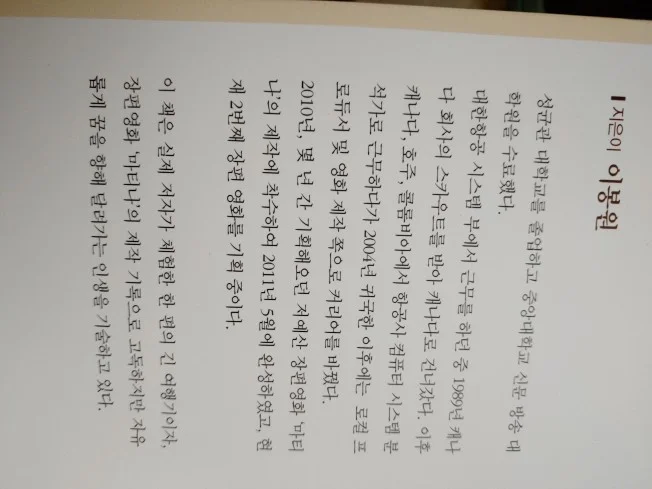 지은이 이봉원
성균관 대학교를 졸업하고 중앙대학교 신문 방송 대
학원을 수료했다.
대한항공 시스템 부에서 근무를 하던 중 1989년 캐나
다 회사의 스카우트를 받아 캐나다로 건너갔다. 이후
캐나다, 호주, 콜롬비아에서 항공사 컴퓨터 시스템 분
석가로 근무하다가 2004년 귀국한 이후에는 로컬 프
로듀서 및 영화 제작 쪽으로 커리어를 바꿨다.
2010년, 몇 년 간 기획해오던 저예산 장편영화 '마티
나'의 제작에 착수하여 2011년 5월에 완성하였고, 현
재 2번째 장편 영화를 기획 중이다.
이 책은 실제 저자가 체험한 한 편의 긴 여행기이자,
장편영화 '마티나'의 제작 기록으로 고독하지만 자유
롭게 꿈을 향해 달려가는 인생을 기술하고 있다.